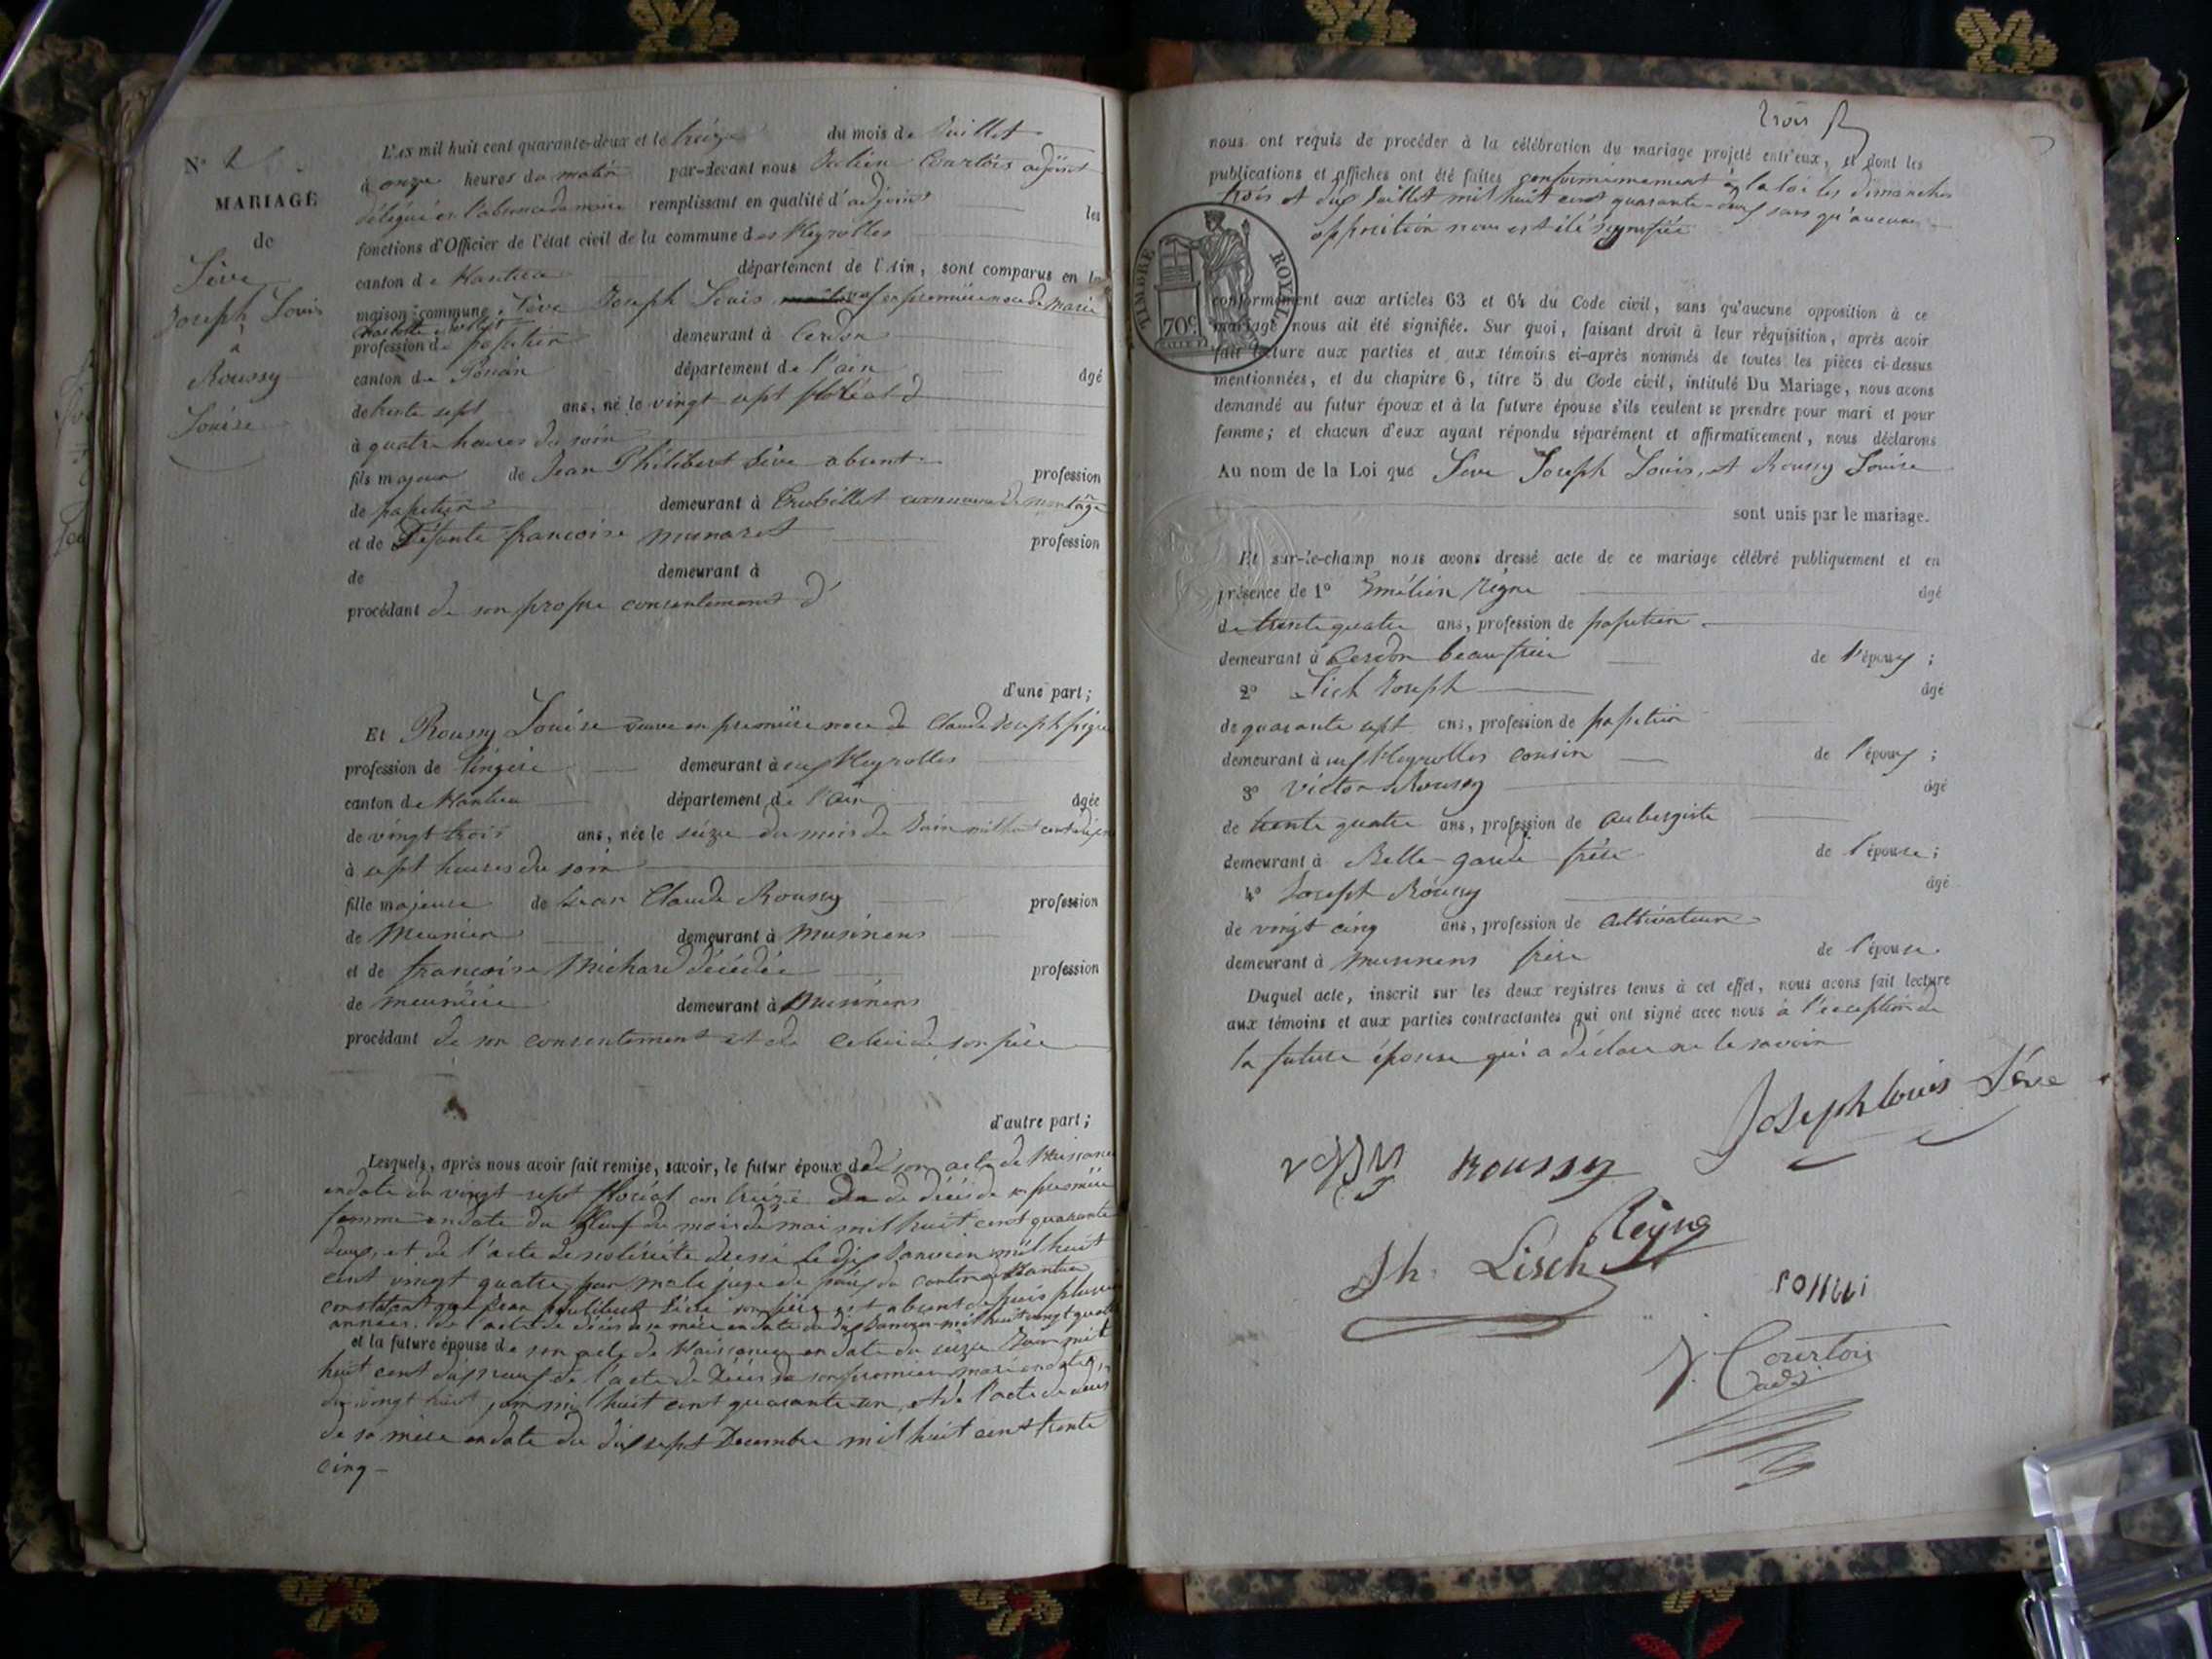 N° 2
MARIAGE
de
Sève
Joseph Louis
à
Roussy
Louise
L'an mil huit cent quarante-deux et le treize du mois de Juillet
à onze heures du matin par-devant nous Julien Courtois adjoint
délégué en l'absence du maire remplissant en qualité d'adjoint les
fonctions d'Officier de l'état civil de la commune des Neyrolles
canton de Nantua département de l'Ain, sont comparus en la
maison commune, Sève Joseph Louis veuf en première noce de Marie
profession de papetier demeurant à Cerdon
canton de Poncin département de l'ain âgé
de trente sept ans, né le vingt sept floréal
à quatre heures du soir
fils majeur de Jean Philibert Sève absent profession
de papetier demeurant à commune de
et de Défunte françoise munaret profession
de demeurant à
procédant de son propre consentement
d'une part;
Et Roussy Louise veuve en première noce de Claude Joseph
profession de lingère demeurant aux Neyrolles
canton de Nantua département de l'ain âgée
de vingt trois ans, née le seize du mois de Juin mil huit cent
à sept heures du soir
fille majeure de Jean Claude Roussy profession
de Meunier demeurant à Musinens
et de françoise Michard décédée profession
de meunière demeurant à Musinens
procédant de son consentement et de celui de son père
d'autre part;
Lesquels, après nous avoir fait remise, savoir, le futur époux de son acte de Naissance
en date du vingt-sept floréal an treize de décès de sa première
femme en date du Neuf du mois de mai mil huit cent quarante
deux, et de l'acte de notoriété dressé le dix Janvier mil huit
cent vingt quatre, par le juge de paix du canton de Nantua
constatant que Jean Philibert Sève son père est absent depuis plusieurs
années. De l'acte de décès de sa mère en date du dix Janvier mil huit vingt quatre
et la future épouse de son acte de Naissance en date du seize Juin mil
huit cent dix neuf de l'acte de Décès de son premier mari en date
du vingt huit juin mil huit cent quarante un, et de l'acte de décès
de sa mère en date du dix sept Décembre mil huit cent trente
cinq
trois
nous ont requis de procéder à la célébration du mariage projeté entr'eux, et dont les
publications et affiches ont été faites conformément à la loi les dimanches
trois et dix Juillet mil huit cent quarante-deux sans qu'aucune
opposition nous ait été signifiée
TIMBRE ROYAL
70c
conformément aux articles 63 et 64 du Code civil, sans qu'aucune opposition à ce
mariage nous ait été signifiée. Sur quoi, faisant droit à leur réquisition, après avoir
fait lecture aux parties et aux témoins ci-après nommés de toutes les pièces ci-dessus
mentionnées, et du chapitre 6, titre 5 du Code civil, intitulé Du Mariage, nous avons
demandé au futur époux et à la future épouse s'ils veulent se prendre pour mari et pour
femme; et chacun d'eux ayant répondu séparément et affirmativement, nous déclarons
Au nom de la Loi que Sève Joseph Louis, et Roussy Louise
sont unis par le mariage.
Et sur-le-champ nous avons dressé acte de ce mariage célébré publiquement et en
présence de 1° Emélien Règne âgé
de trente quatre ans, profession de papetier
demeurant à Cerdon beau frère de l'époux;
2° Lich Joseph âgé
de quarante sept ans, profession de papetier
demeurant aux Neyrolles cousin de l'époux;
3° Victor Roussy âgé
de trente quatre ans, profession de aubergiste
demeurant à Belle-garde frère de l'épouse;
4° Joseph Roussy âgé
de vingt cinq ans, profession de cultivateur
demeurant à musinens frère de l'épouse
Duquel acte, inscrit sur les deux registres tenus à cet effet, nous avons fait lecture
aux témoins et aux parties contractantes qui ont signé avec nous à l'exception de
la future épouse qui a déclaré ne le savoir
Joseph louis Sève
Roussy
Règne
Jh. Lisch
J. Courtois
adj